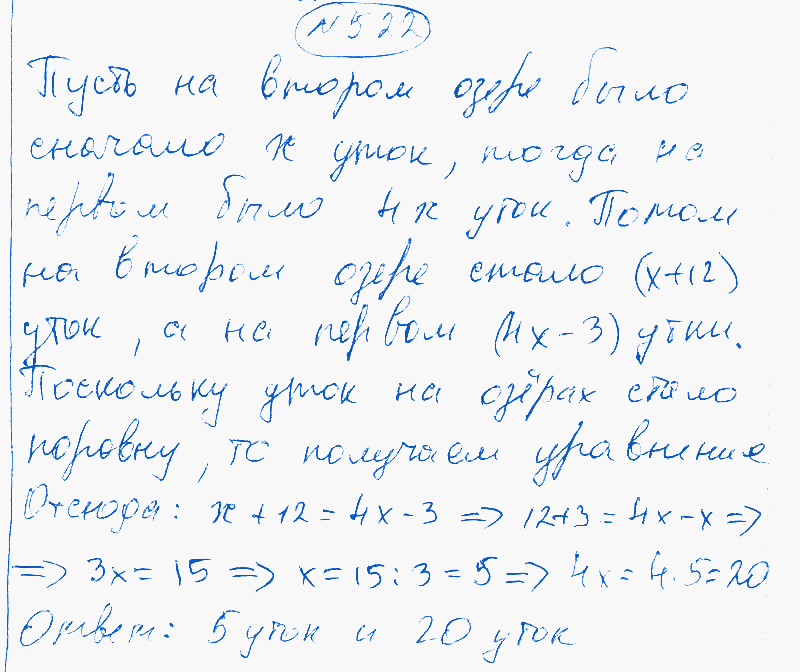 № 522
Пусть на втором озере было
сначало x уток, тогда на
первом было 4x уток. Потом
на втором озере стало (x+12)
уток, а на первом (4x-3) утки.
Поскольку уток на озёрах стало
поровну, то получаем уравнение
Отсюда: x+12=4x-3 => 12+3=4x-x =>
=> 3x=15 => x=15:3=5 => 4x=4·5=20
Ответ: 5 уток и 20 уток